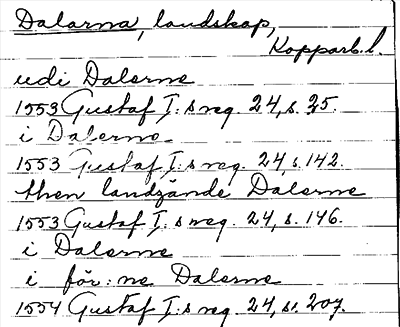 Dalarna, landskap,
Kopparb. l.
udi Dalerne
1553 Gustaf I:s reg. 24, s. 35.
i Dalerno
1553 Gustaf I:s reg. 24, s. 142.
then landzände Dalerne
1553 Gustaf I:s reg. 24, s. 146.
i Dalerne
i för:ne Dalerne
1554 Gustaf I:s reg. 24, s. 207.